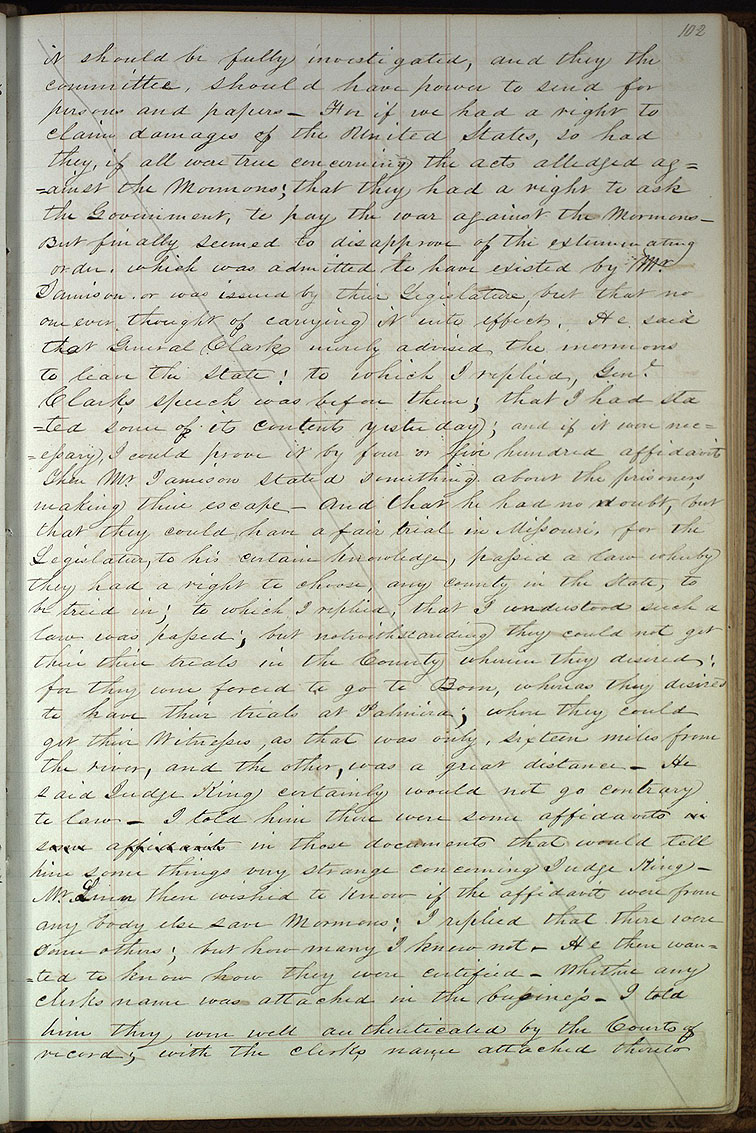 102
it should be fully investigated, and they the
committee, should have power to send for
persons and papers – For if we had a right to
claim damages of the United States, so had
they, if all were true concerning the acts alledged ag=
=ainst the Mormons; that they had a right to ask
the Government, to pay the war against the Mormons –
But finally seemed to disapprove of the exterminating
order. which was admitted to have existed by Mr.
Jamison. or was issued by their Legislature, but that no
one ever thought of carrying it into effect. He said
that General Clark merely advised the mormons
to leave the State: to which I replied, Genl.
Clarks speech was before them; that I had sta
=ted some of its contents yesterday; and if it were nec=
=essary, I could prove it by four or five hundred affidavits
Then Mr Jamison stated something about the prisoners
making their escape – And that he had no doubt, but
that they could have a fair trial in Missouri. for the
Legislatur, to his certain knowledge, passed a law whereby
they had a right to choose any county in the State, to
be tried in; to which I replied, that I understood such a
law was passed; but notwithstanding they could not get
their their trials in the County wherein they desired;
for they were forced to go to Boon, whereas they desired
to have their trials at Palmira; where they could
get their Witnesses, as that was only, sixteen miles from
the river, and the other, was a great distance – He
said Judge King certainly would not go contrary
to law – I told him there were some affidavits in
some affidavits in those documents that would tell
him some things very strange concerning Judge King –
Mr Linn then wished to know if the affidavit were from
any body else save Mormons; I replied that there were
some others; but how many I knew not – He then wan=
=ted to know how they were certified – Whether any
clerks name was attached in the business – I told
him they were well authenticated by the Courts of
record; with the clerks name attached thereto